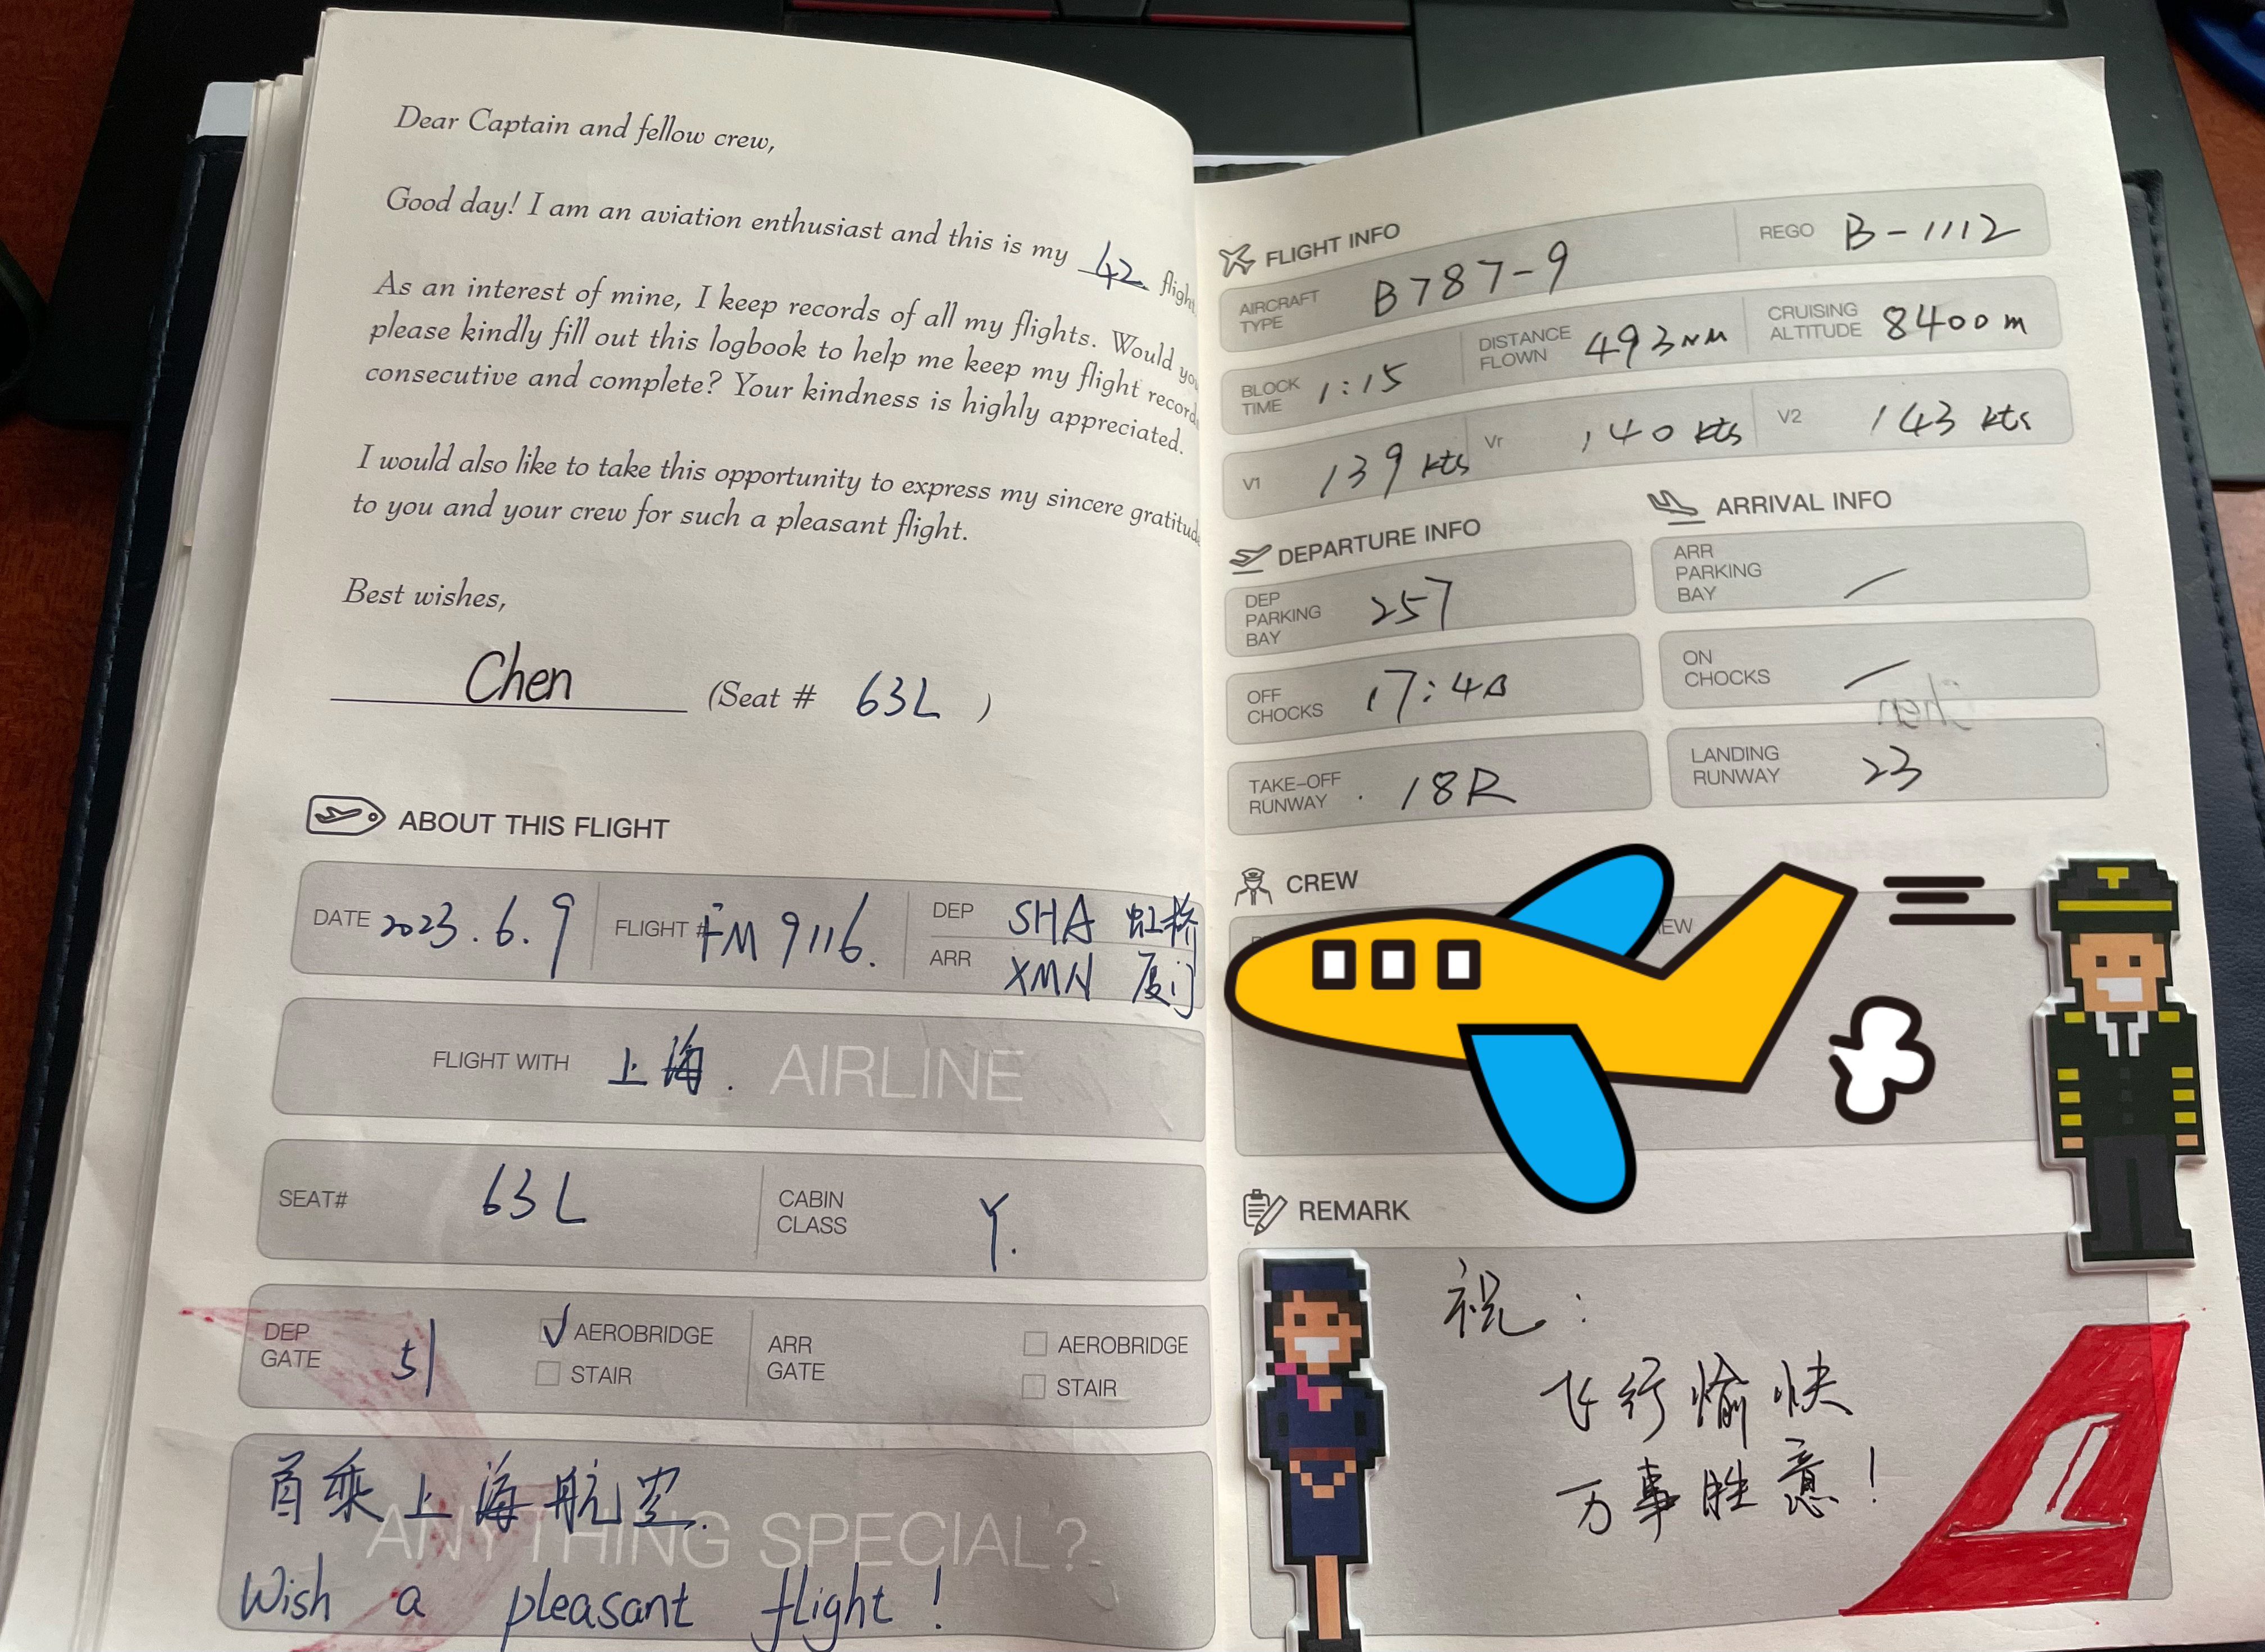 Dear Captain and fellow crew,
Good day! I am an aviation enthusiast and this is my 42 flight
As an interest of mine, I keep records of all my flights. Would you
please kindly fill out this logbook to help me keep my flight record
consecutive and complete? Your kindness is highly appreciated.
I would also like to take this opportunity to express my sincere gratitude
to you and your crew for such a pleasant flight.
Best wishes,
Chen (Seat # 63L )
ABOUT THIS FLIGHT
DATE 2023.6.9 FLIGHT # FM 9116. DEP SHA 虹桥
ARR XMN 厦门
FLIGHT WITH 上海. AIRLINE
SEAT# 63L CABIN CLASS Y.
DEP GATE 51 AEROBRIDGE STAIR ARR GATE AEROBRIDGE STAIR
首乘上海航空.
ANYTHING SPECIAL?
Wish a pleasant flight!
FLIGHT INFO
AIRCRAFT TYPE B787-9 REGO B-1112
BLOCK TIME 1:15 DISTANCE FLOWN 493NM CRUISING ALTITUDE 8400m
V1 139 kts Vr 140 kts V2 143 kts
DEPARTURE INFO
DEP PARKING BAY 257
OFF CHOCKS
TAKE-OFF RUNWAY 18R
ARRIVAL INFO
ARR PARKING BAY
ON CHOCKS
LANDING RUNWAY 23
CREW
REMARK
祝:
飞行愉快
万事胜意!